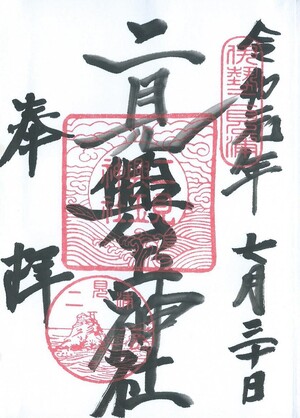 令和元年 七月三十日
伊勢二見浦
二見興玉神社
奉拝
二見浦